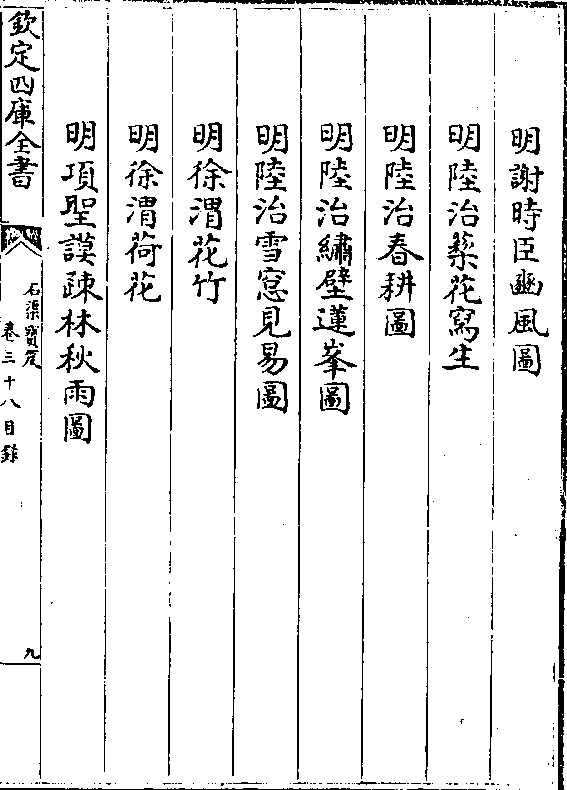 明謝時臣豳風圖
明陸治蔡花寫生
明陸治春耕圖
明陸治繡壁蓮峯圖
明陸治雪窓見易圖
明徐渭花竹
明徐渭荷花
明項聖謨疎林秋雨圖
欽定四庫全書
石渠寳笈
卷三十八目錄
九